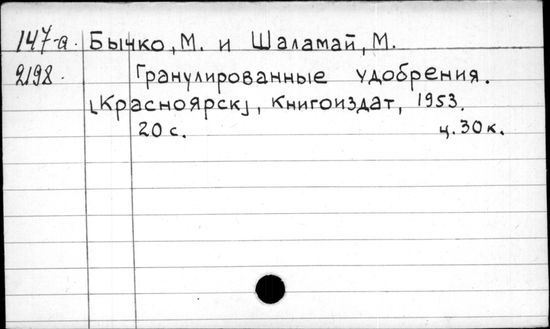 147-а. Бычко, М. и Шаламай, М.
2198. Гранулированные удобрения.
[Красноярск], Книгоиздат, 1953.
20 с. ц. 30 к.